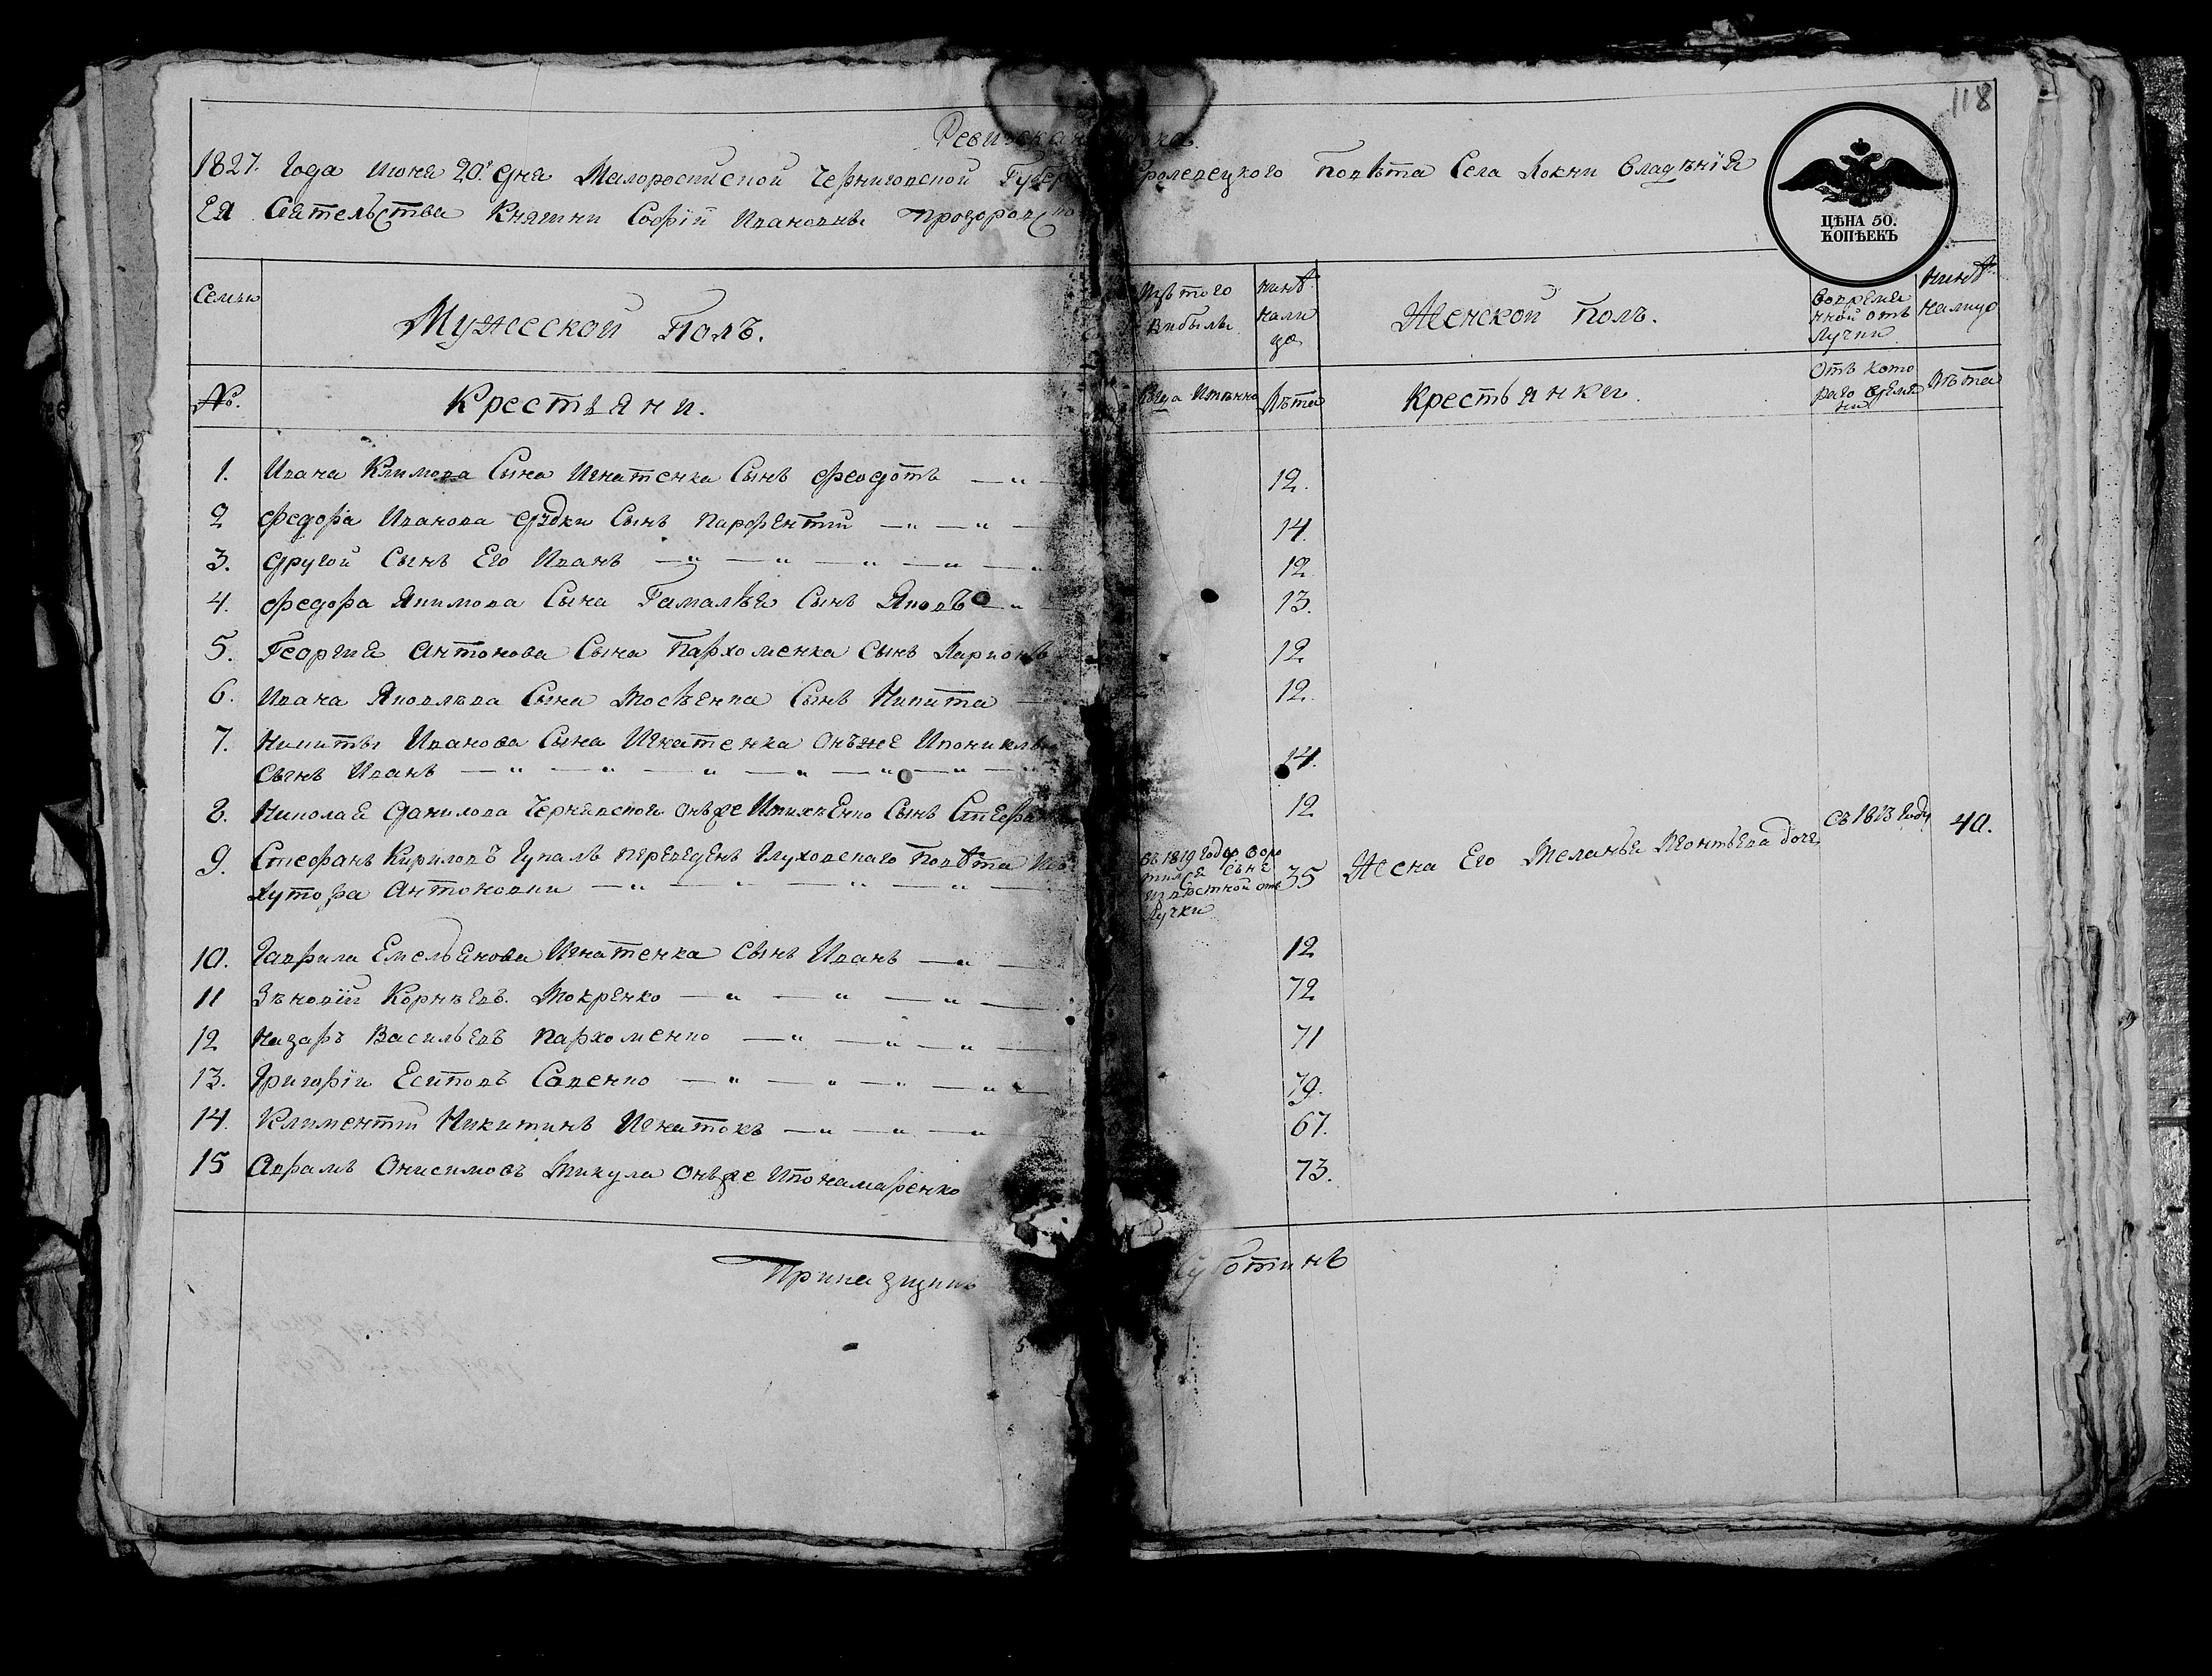 118
Ревизская
1827. Года июня 20го дня Малоросiйской Черниговской Губер Кролевецкого Повѣта Села Локни владѣнiя
Ея Сиятельства Княжни Софiй Ивановны Прозоровско
ЦѢНА 50.
КОПѢЕКЪ
Семьи
Мужеской Полъ.
Изъ того
Выбыли
нинѣ
нали
цо
Женской Полъ.
во времян
ной отъ
лучки
нинѣ
налицо
№.
Крестьяни.
Когда Имянно
Лѣта
Крестьянки.
Отъ кото
раго время
ни
Лѣта
1. Ивана Климова Сына Игнатенка Сынъ Феодотъ 12.
2 Федора Иванова Сынъ Парфентiй 14.
3. Другой Сынъ Его Иванъ 12
4. Федора Якимова Сына Гамалѣя Сынъ Яковъ 13.
5. Георгия Антонова Сына Пархоменка Сынъ Ларионъ 12.
6. Ивана Яковлѣва Сына Мосѣенка Сынъ Никита 12.
7. Никиты Иванова Сына Игнатенка онъже
Сынъ Иванъ 14.
8. Николая Данилова Чернявской онъже Сынъ Стефа 12
9. Стефанъ Кириловъ Гупалъ переведенъ Глуховского Повѣта Изъ
въ 1819 Году воро
тился сынѣ
Извѣстной от
лучки
35 Жена Его Меланья Леонтьева дочь
съ 1813 Году 40.
Хутора Антоновки
10. Гаврила Емельянова Игнатенка Сынъ Иванъ 12
11 Зѣновiй Корнѣевъ Мокренко 72
12 Назаръ Васильевъ Пархоменко 71
13. Григорiй Есиповъ Савенко 79.
14. Климентiй Никитинъ Игнатокъ 67.
15 Аврамъ Онисимовъ Микула онъже Ипонамаренко 73.
Приказщикъ Суботинъ